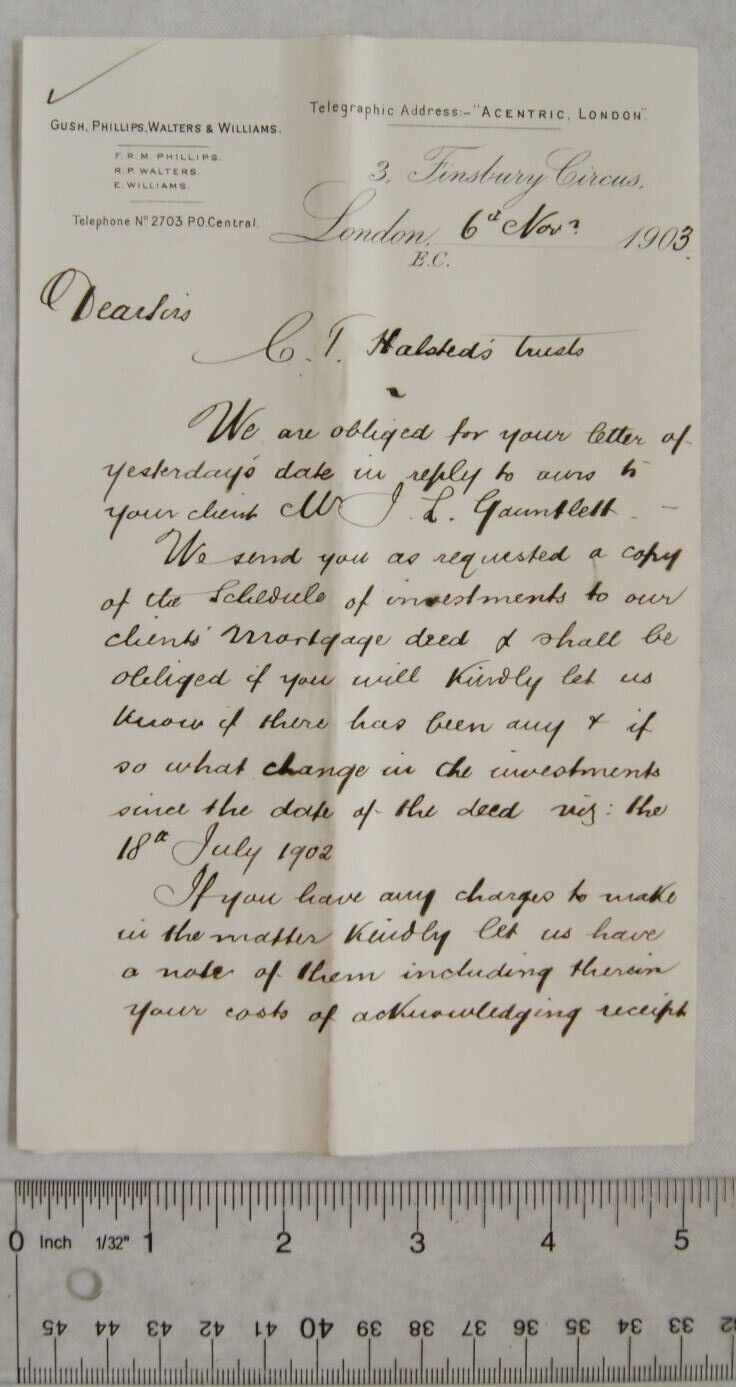 Telegraphic Address:- "ACENTRIC, LONDON".
GUSH, PHILLIPS, WALTERS & WILLIAMS.
F. R. M. PHILLIPS.
R. P. WALTERS.
E. WILLIAMS.
Telephone Nº 2703 P.O. Central.
3, Finsbury Circus,
London, 6th Novr 1903.
E.C.
Dear Sirs
C. T. Halsted's trusts
We are obliged for your letter of
yesterday's date in reply to ours to
your client Mr J. L. Gauntlett -
We send you as requested a copy
of the Schedule of investments to our
clients' Mortgage deed & shall be
obliged if you will kindly let us
know if there has been any & if
so what change in the investments
since the date of the deed viz: the
18th July 1902
If you have any charges to make
in the matter kindly let us have
a note of them including therein
your costs of acknowledging receipt
0 Inch 1/32" 1 2 3 4 5
45 44 43 42 41 40 39 38 37 36 35 34 33 32